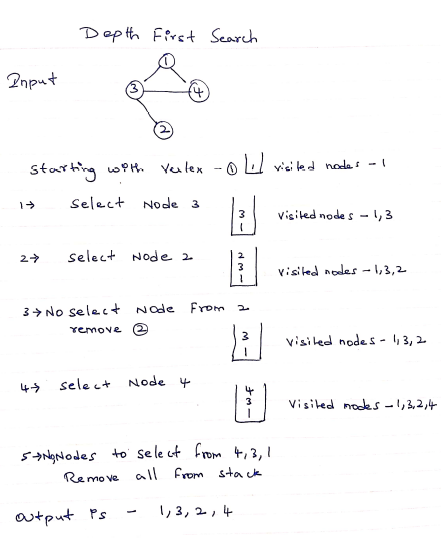 Depth First Search
Input
1
3
4
2
Starting with Vertex - ① 1 visited nodes - 1
1→ Select Node 3
3
1
Visited nodes - 1,3
2→ select Node 2
2
3
1
Visited nodes - 1,3,2
3→ No select Node From 2
remove ②
3
1
Visited nodes - 1,3,2
4→ select Node 4
4
3
1
Visited nodes - 1,3,2,4
5→ No Nodes to select from 4,3,1
Remove all from stack
Output is - 1,3,2,4